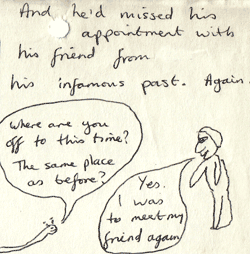 And he'd missed his
appointment with
his friend from
his infamous past. Again.
Where are you
off to this time?
The same place
as before?
Yes.
I was
to meet my
friend again